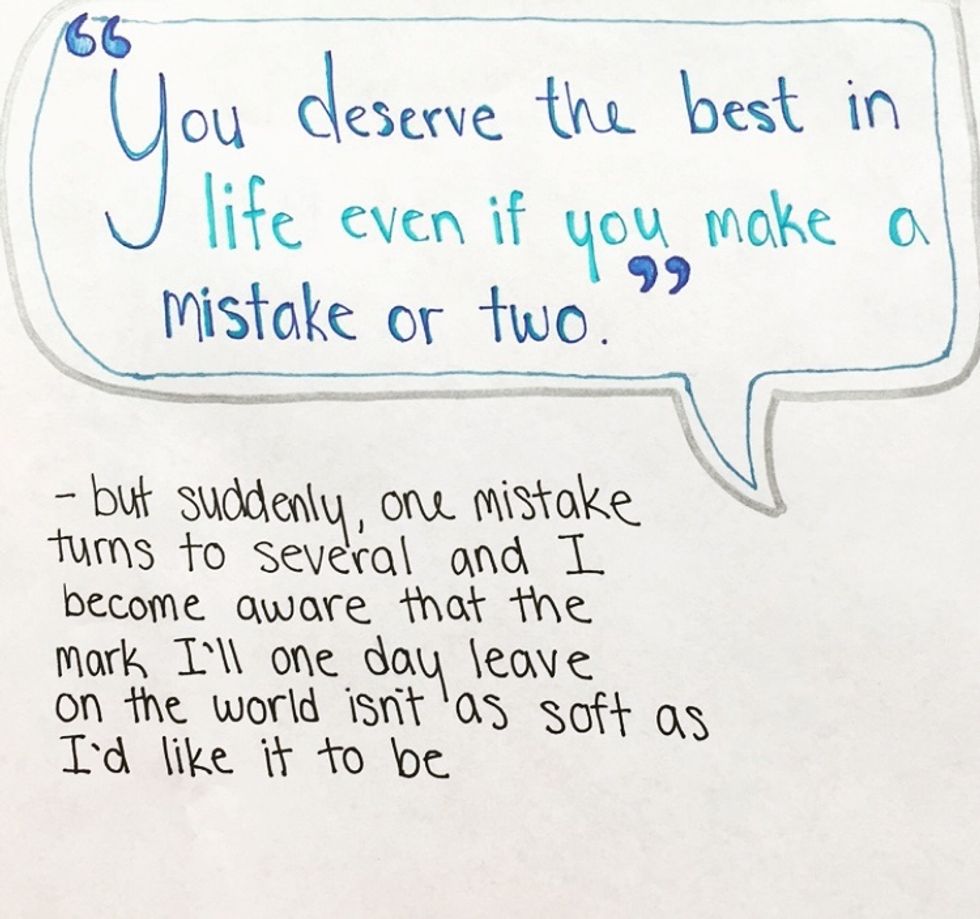 “You deserve the best in
life even if you make a
mistake or two.”
- but suddenly, one mistake
turns to several and I
become aware that the
mark I'll one day leave
on the world isn't as soft as
I'd like it to be